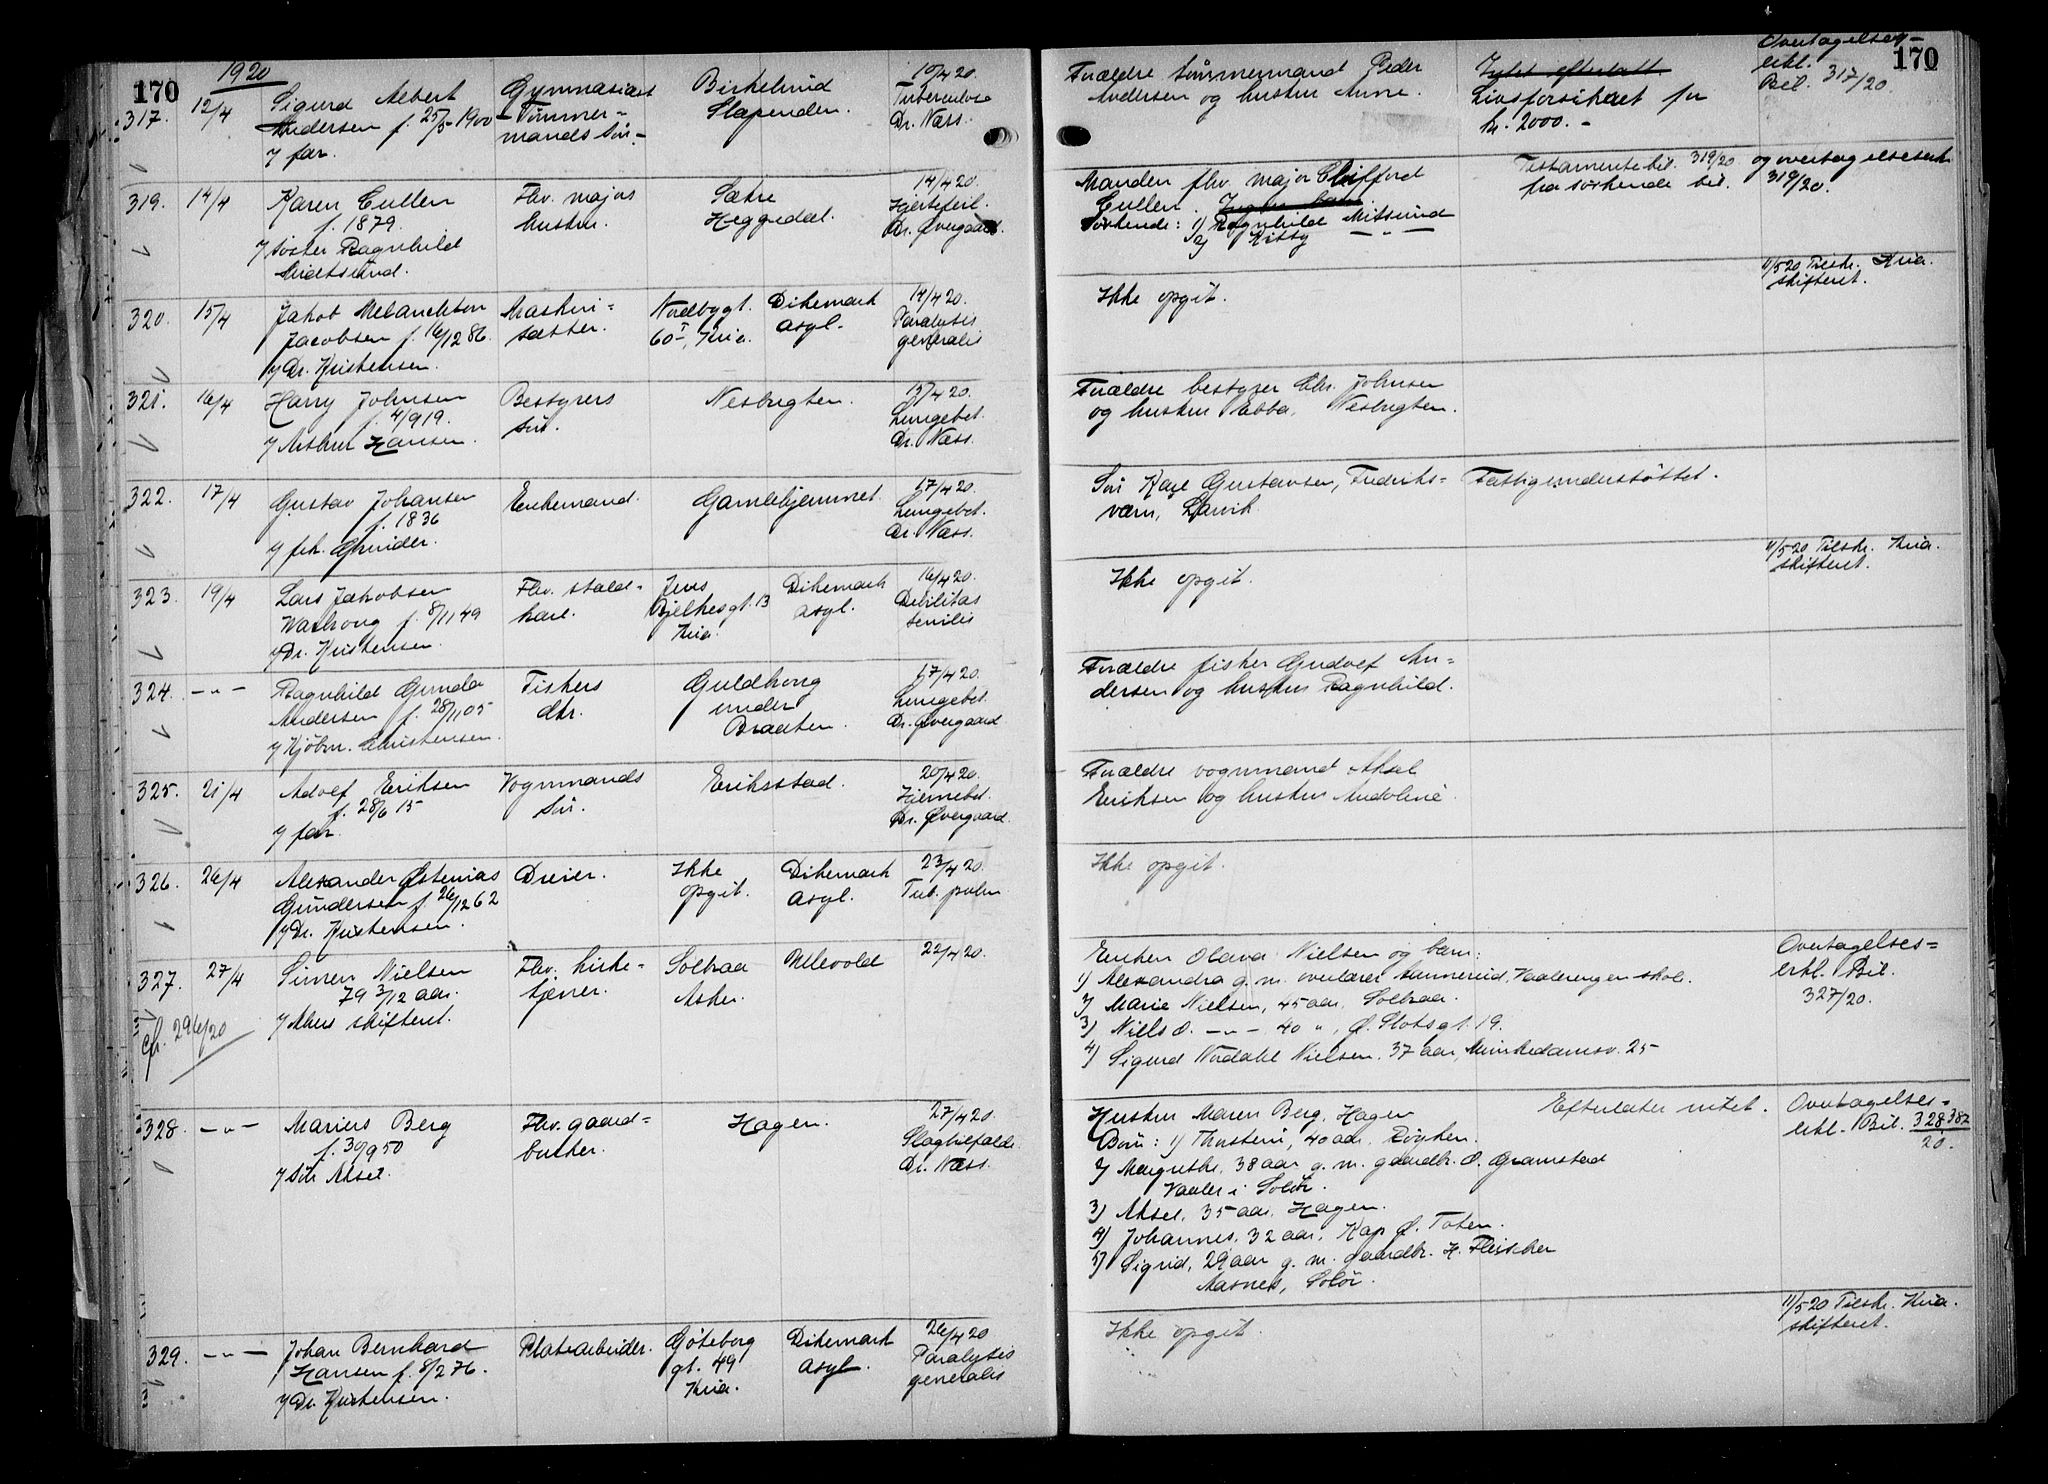 170
1920
317. 12/4 Sigurd Albert Gymnasiast Birkelund 10/4 20.
Andersen f. 25/5 1900 - Tømmer- Slependen. Tuberculose
7 far. mands søn. - Dr. Næss.
319. 14/4 Karen Cullen Fhv. majors Sætre 14/4 20.
f. 1879. hustru. Heggedal. Hjertefeil.
7 søster Ragnhild Dr. Øvergaard.
Mitsund.
320. 15/4 Jakob Melanchton Maskin= Nordbygt. Dikemark 14/4 20.
Jacobsen f. 16/12 86. sætter. 60 I, Kria. asyl. Paralysis
7 Dr. Kristensen. generalis
321. 16/4 Harry Johnsen Bestyrers Nesbugten. 15/4 20.
f. 4/9 19. søn. Lungebet.
7 Arthur Hansen. Dr. Næss.
322. 17/4 Gustav Johansen Enkemand. Gamlehjemmet. 17/4 20.
f. 1836 Lungebet.
7 frk. Dr. Næss.
323. 19/4 Lars Jakobsen Fhv. stald= Jens Dikemark 16/4 20.
f. 8/11 49 karl. Bjelkesgt. 13 asyl. Debilitas
7 Dr. Kristensen. Kria. senilis
324. -"- Ragnhild Gunda Fiskers Guldhong 17/4 20.
Andersen f. 28/11 05 dtr. under Lungebet.
7 Kjøbm. Christensen. Braaten. Dr. Øvergaard
325. 21/4 Adolf Eriksen Vognmands Eriksstad. 20/4 20.
f. 28/6 15 søn. Hjernebet.
7 far. Dr. Øvergaard.
326. 26/4 Alexander Østenius Dreier. Ikke Dikemark 23/4 20.
Gundersen f. 26/12 62 opgit. asyl. Tub. pulm.
7 Dr. Kristensen.
327. 27/4 Simen Nielsen Fhv. kirke= Solbraa Ullevold 22/4 20.
79 3/12 aar. tjener. Asker.
7 Akers skifteret.
Cfr. 296/20
328. -"- Marius Berg Fhv. gaard= Hagen. 27/4 20.
f. 30/9 50 bruker. Slagtilfælde
7 søn Aksel. Dr. Næss.
329. -"- Johan Bernhard Platearbeider. Göteborg Dikemark 26/4 20
Hansen f. 8/2 76. gt. 49 asyl. Paralysis
7 Dr. Kristensen. Kria. generalis
170
Forældre tømmermand Peder Intet efterlatt Overtagelses-
Andersen og hustru Anne. Livsforsikret for erkl.
kr. 2000.- Bil. 317/20.
Manden fhv. major Clifford Testamente bil. 319/20 og overtagelseserk
Cullen. fra søskende bil. 319/20.
Søskende: 1) Ragnhild Mitsund
2) Kitty -"-
Ikke opgit. 11/5 20 Tilskr. Kria.
skifteret.
Forældre bestyrer Chr. Johnsen
og hustru Ebba, Nesbugten.
Søn Karl Gustavsen, Fredriks= Fattigunderstøttet.
værn, Larvik.
Ikke opgit. 11/5 20 Tilskr. Kria.
skifteret.
Forældre fisker Gudolf An=
dersen og hustru Ragnhild.
Forældre vognmand Aksel
Eriksen og hustru Andoline
Ikke opgit.
Enken Olava Nielsen og barn: Overtagelses=
1) Alexandra g. m. overlærer Sannerud, Vaalerengen skol. erkl. Bil.
2) Marie Nielsen, 45 aar, Solbraa. 327/20.
3) Niels O. -"- 40 ", Ø. Slotsgt. 19.
4) Sigurd Nordahl Nielsen, 37 aar, Munkedamsv. 25
Hustru Maren Berg, Hagen Efterlater intet. Overtagelses=
Børn: 1) Thorstein, 40 aar, Røyken. erkl. Bil. 328 387
20.
2) Margrethe, 38 aar g. m. gaardbr. O. Gramstad
Vaaler i Solør.
3) Aksel, 35 aar, Hagen.
4) Johannes, 32 aar, Kap Ø. Toten.
5) Sigrid, 29 aar g. m. gaardbr. H. Fleischer
Aasnes, Solør.
Ikke opgit. 11/5 20 Tilskr. Kria.
skifteret.